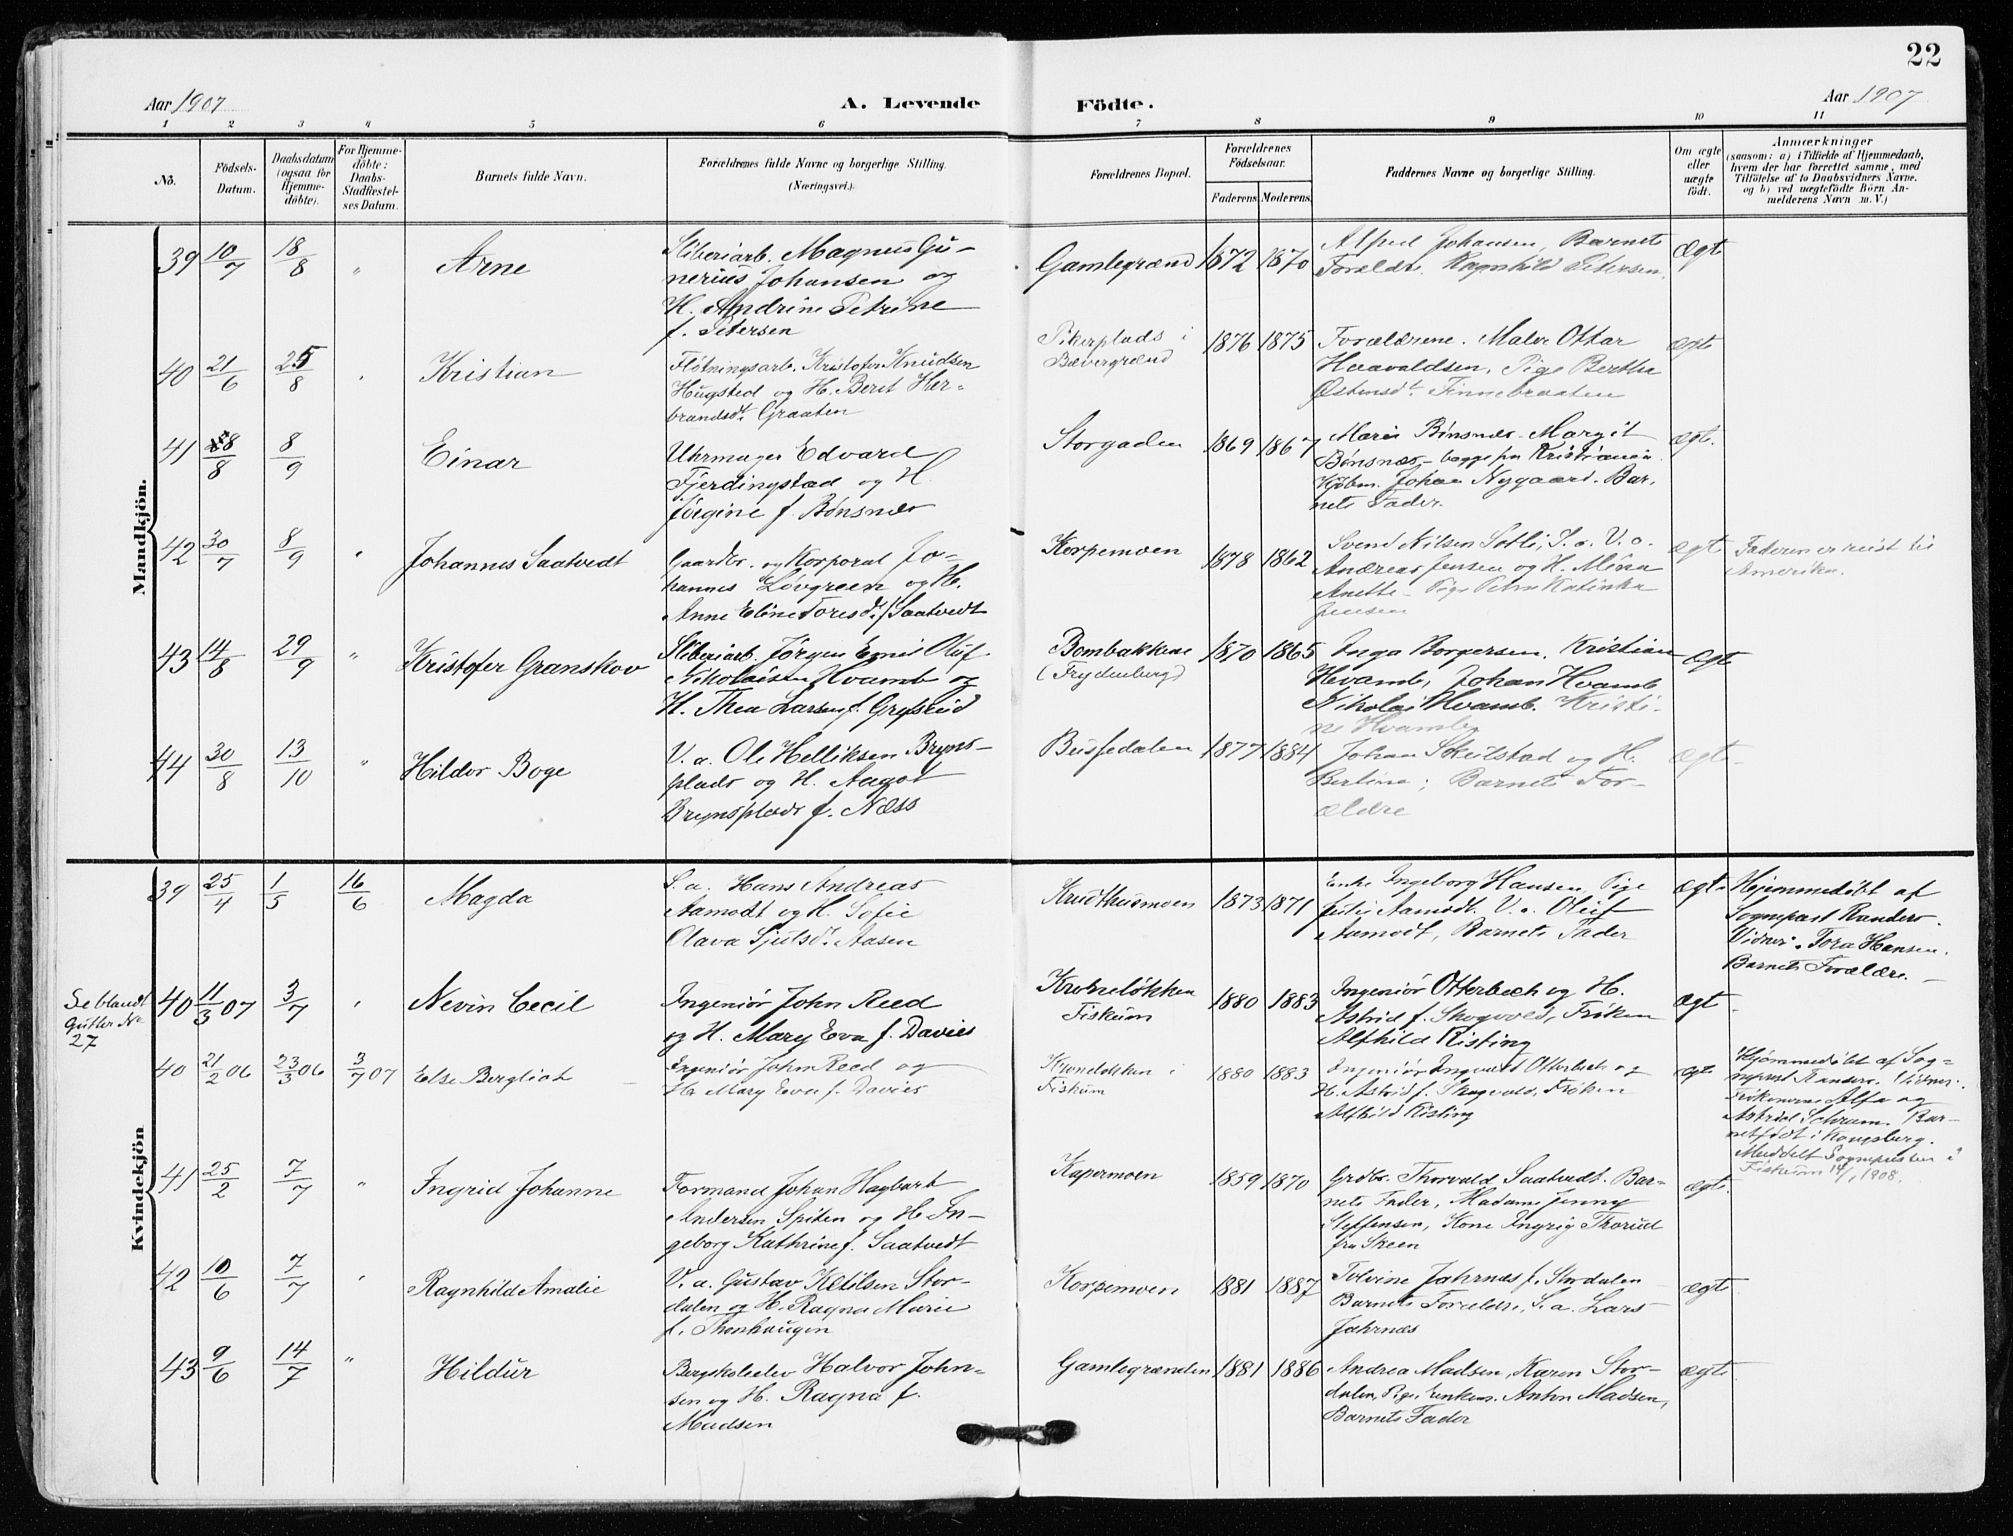 22
Aar 1907
A. Levende
Födte.
Aar 1907
1 2 3 4 5 6 7 8 9 10 11
No.
Födsels-
Datum.
Daabsdatum
(ogsaa for
Hjemme-
döbte).
For Hjemme-
döbte:
Daabs-
Stadfæstel-
ses Datum.
Barnets fulde Navn.
Forældrenes fulde Navne og borgerlige Stilling.
(Næringsvei.)
Forældrenes Bopæl.
Forældrenes
Födselsaar.
Faderens Moderens
Faddernes Navne og borgerlige Stilling.
Om ægte
eller
uægte
födt.
Anmærkninger
(saasom: a) i Tilfælde af Hjemmedaab,
hvem der har forrettet samme, med
Tilföielse af to Daabsvidners Navne.
og b) ved uægtefödte Börn An-
melderens Navn m. V.)
Mandkjön.
39 10/7 18/8 "
Arne
Sliberiarb. Magnus Gu-
nerius Johansen og
H. Andrine Petrine
f. Petersen
Gamlegrænd 1872 1870
Alfred Johansen, Barnets
Foræld. Ragnhild Petersen.
Ægt
40 21/6 25/8
Kristian
Flötningsarb. Kristofer Knudsen
Hugsted og H. Berit Her-
brandsdt. Graaten
Pikerplads i
Bævergrænd
1876 1875
Forældrene. Maler Ottar
Haavaldsen, Pige Bertha
Östensdt. Finnebraaten
ægt
41 28/8 8/9
Einar
Uhrmager Edvard
Fjerdingstad og H.
Jörgine f. Bönsnæs
Storgaden 1869 1867
Maria Bönsnæs. Margit
Bönsnæs - begge fra Kristiania.
Kjöbm. Johan Nygaard. Bar-
nets Fader.
ægt.
42 30/7 8/9 "
Johannes Saatvedt
Gaardbr. og Korporal Jo-
hannes Lövgreen og H.
Anne Eline Toresdt. Saatvedt
Korpemoen 1878 1862
Svend Nilsen Sætli, S. a. V. a.
Andreas Jensen og H. Mina
Anette - Pige Petra Katinka
Jensen
ægt
Faderen er reist til
Amerika.
43 14/8 29/9 "
Kristofer Granskov
Sliberiarb. Jörgen Emil Oluf
Nikolaisen Hvamb og
H. Thea Larsen f. Gryserud
Bombakkene
(Frydenberg)
1870 1865
Inga Borgersen, Kristian
Hvamb, Johan Hvamb
Nikolai Hvamb. Kristi-
ne Hvamb
ægt
44 30/8 13/10 "
Hildor Boge
V. a. Ole Helliksen Bryns-
plads og H. Aagot
Brynsplads f. Næss
Bussedalen 1877 1884
Johan Skeilstad og H.
Bertine; Barnets For-
ældre
ægt.
Kvindekjön
39 25/4 1/5 16/6
Magda
S. a. Hans Andreas
Aamodt og H. Sofie
Olava Sjulsdt. Aasen
Krudthusmoen 1873 1871
Enke Ingeborg Hansen, Pige
Julie Aamodt. V. a. Oluf
Aamodt, Barnets Fader
ægt.
Hjemmedöbt af
Sognepræst Randers.
Vidner: Tora Hansen.
Barnets Forældre. -
Se blandt
Gutter No.
27
40 11/3 07 3/7 "
Nevin Cecil
Ingeniör John Reed
og H. Mary Eva f. Davies
Kroneløkken
Fiskum
1880 1883
Ingeniör Otterbech og H.
Astrid f. Skogvold, Fröken
Alfhild Risting
ægt
40 21/2 06 23/3 06 3/7 07
Else Bergliot
Ingeniör John Reed og
H. Mary Eva f. Davies
Kronelökken i
Fiskum
1880 1883
Ingeniör Ingvard Otterbech og
H. Astrid f. Skogvold, Fröken
Alfhild Risting
ægt
Hjemmedöbt af Sog-
nepræst Randers. Vidner:
Frökenerne Alfa og
Astrid Schram. Bar-
net födt i Kongsberg.
Meddelt Sognepræsten i
Fiskum 14/1 1908.
41 25/2 7/7 "
Ingrid Johanne
Formand Johan Hagbart
Andersen Spiten og H. In-
geborg Kathrine f. Saatvedt
Kapermoen 1859 1870
Grdbr. Thorvald Saatvedt. Bar-
nets Fader, Madam Jenny
Steffensen, Kone Ingrig Thorud
fra Skeen
ægt.
42 10/6 7/7 "
Ragnhild Amalie
V. a. Gustav Ketilsen Stor-
dalen og H. Ragna Marie
f. Thonhaugen
Korpemoen 1881 1887
Tolvine Jahrnæs f. Stordalen
Barnets Forældre, S. a. Lars
Jahrnæs
ægt.
43 9/6 14/7 "
Hildur
Bergskoleelev Halvor John-
sen og H. Ragna f.
Madsen
Gamlegrænden 1881 1886
Andrea Madsen, Karen Stor-
dalen, Anton Madsen,
Barnets Fader
ægt.